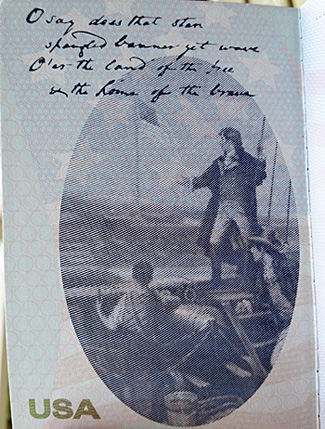 O say does that star
spangled banner yet wave
O'er the land of the free
& the home of the brave
USA